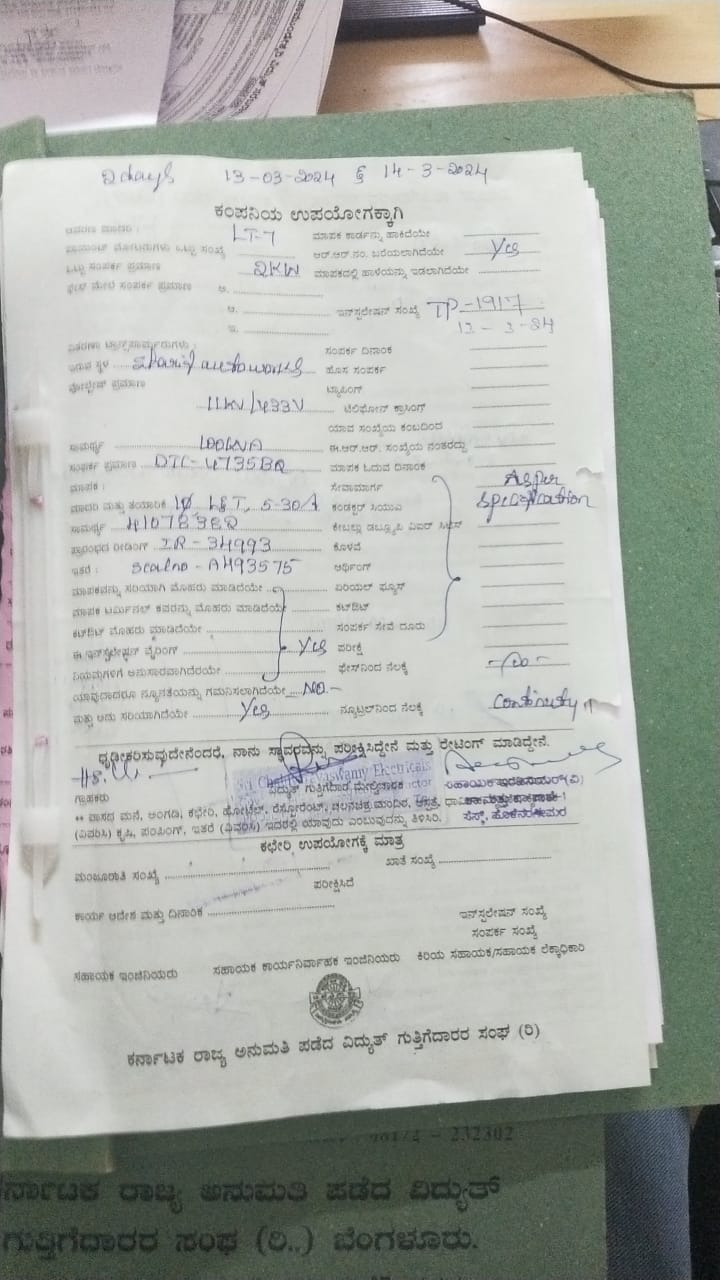 2days 13-03-2024 & 14-3-2024
ಕಂಪನಿಯ ಉಪಯೋಗಕ್ಕಾಗಿ
LT-7 ಮಾಪಕ ಕಾರ್ಡನ್ನು ಹಾಕಿದೆಯೇ
ಒಟ್ಟು ಸಂಖ್ಯೆ ಆರ್.ಆರ್.ನಂ. ಬರೆಯಲಾಗಿದೆಯೇ Yes
ಒಟ್ಟು ಸಂಪರ್ಕ ಪ್ರಮಾಣ 2KW ಮಾಪಕದಲ್ಲಿ ಹಾಳೆಯನ್ನು ಇಡಲಾಗಿದೆಯೇ
ಸಂಪರ್ಕ ಪ್ರಮಾಣ ಅ.
ಆ. ಇನ್‌ಸ್ಟಲೇಷನ್ ಸಂಖ್ಯೆ TP-1917
ಇ. 13-3-24
ಸಂಪರ್ಕ ದಿನಾಂಕ
ಇರುವ ಸ್ಥಳ ಹೊಸ ಸಂಪರ್ಕ
ವೋಲ್ಟೇಜ್ ಪ್ರಮಾಣ ಟ್ಯಾಪಿಂಗ್
11KV/433V ಟೆಲಿಫೋನ್ ಕ್ರಾಸಿಂಗ್
ಯಾವ ಸಂಖ್ಯೆಯ ಕಂಬದಿಂದ
ಸಾಮರ್ಥ್ಯ 100KVA ಈ.ಆರ್.ಆರ್. ಸಂಖ್ಯೆಯ ನಂತರದ್ದು
ಸಂಪರ್ಕ ಪ್ರಮಾಣ DTC-4735BQ ಮಾಪಕ ಓದುವ ದಿನಾಂಕ
ಮಾಪಕ : ಸೇವಾಮಾರ್ಗ As per
ಮಾದರಿ ಮತ್ತು ತಯಾರಿಕೆ 1φ, L&T, 5-30A ಕಂಡಕ್ಟರ್ ಸಿಯುವಿ specification
ಸಾಮರ್ಥ್ಯ
ಪ್ರಾರಂಭದ ರೀಡಿಂಗ್ IR-34993 ಕೊಳವೆ
ಇತರೆ : Sealno-A493575 ಅರ್ಥಿಂಗ್
ಮಾಪಕವನ್ನು ಸರಿಯಾಗಿ ಮೊಹರು ಮಾಡಿದೆಯೇ ಏರಿಯಲ್ ಫ್ಯೂಸ್
ಮಾಪಕ ಟರ್ಮಿನಲ್ ಕವರನ್ನು ಮೊಹರು ಮಾಡಿದೆಯೇ ಕಟ್‌ಔಟ್
ಕಟ್‌ಔಟ್ ಮೊಹರು ಮಾಡಿದೆಯೇ ಸಂಪರ್ಕ ಸೇವೆ ದೂರು
ಈ ಇನ್‌ಸ್ಟಲೇಷನ್ ವೈರಿಂಗ್ Yes ಪರೀಕ್ಷೆ
ನಿಯಮಗಳಿಗೆ ಅನುಸಾರವಾಗಿದೆಯೇ ಫೇಸ್‌ನಿಂದ ನೆಲಕ್ಕೆ
ಯಾವುದಾದರೂ ನ್ಯೂನತೆಯನ್ನು ಗಮನಿಸಲಾಗಿದೆಯೇ NO.-
ಮತ್ತು ಅದು ಸರಿಯಾಗಿದೆಯೇ Yes ನ್ಯೂಟ್ರಲ್‌ನಿಂದ ನೆಲಕ್ಕೆ Continuity
ಧೃಡೀಕರಿಸುವುದೇನೆಂದರೆ, ನಾನು ಸ್ಥಾವರವನ್ನು ಪರೀಕ್ಷಿಸಿದ್ದೇನೆ ಮತ್ತು ರೇಟಿಂಗ್ ಮಾಡಿದ್ದೇನೆ.
Electricals
ಗ್ರಾಹಕರು ವಿದ್ಯುತ್ ಗುತ್ತಿಗೆದಾರ ಮೇಲ್ವಿಚಾರಕ
** ವಾಸದ ಮನೆ, ಅಂಗಡಿ, ಕಛೇರಿ, ಹೋಟೆಲ್, ರೆಸ್ಟೋರೆಂಟ್, ಚಲನಚಿತ್ರ ಮಂದಿರ, ಆಸ್ಪತ್ರೆ,
(ವಿವರಿಸಿ) ಕೃಷಿ, ಪಂಪಿಂಗ್, ಇತರೆ (ವಿವರಿಸಿ) ಇದರಲ್ಲಿ ಯಾವುದು ಎಂಬುವುದನ್ನು ತಿಳಿಸಿರಿ.
ಕಛೇರಿ ಉಪಯೋಗಕ್ಕೆ ಮಾತ್ರ
ಮಂಜೂರಾತಿ ಸಂಖ್ಯೆ ಖಾತೆ ಸಂಖ್ಯೆ
ಪರೀಕ್ಷಿಸಿದೆ
ಕಾರ್ಯ ಆದೇಶ ಮತ್ತು ದಿನಾಂಕ ಇನ್‌ಸ್ಟಲೇಷನ್ ಸಂಖ್ಯೆ
ಸಂಪರ್ಕ ಸಂಖ್ಯೆ
ಸಹಾಯಕ ಇಂಜಿನಿಯರು ಸಹಾಯಕ ಕಾರ್ಯನಿರ್ವಾಹಕ ಇಂಜಿನಿಯರು ಕಿರಿಯ ಸಹಾಯಕ/ಸಹಾಯಕ ಲೆಕ್ಕಾಧಿಕಾರಿ
ಕರ್ನಾಟಕ ರಾಜ್ಯ ಅನುಮತಿ ಪಡೆದ ವಿದ್ಯುತ್ ಗುತ್ತಿಗೆದಾರರ ಸಂಘ (ರಿ)
232302
ರ್ನಾಟಕ ರಾಜ್ಯ ಅನುಮತಿ ಪಡೆದ ವಿದ್ಯುತ್
ಗುತ್ತಿಗೆದಾರರ ಸಂಘ (ರಿ..) ಬೆಂಗಳೂರು.